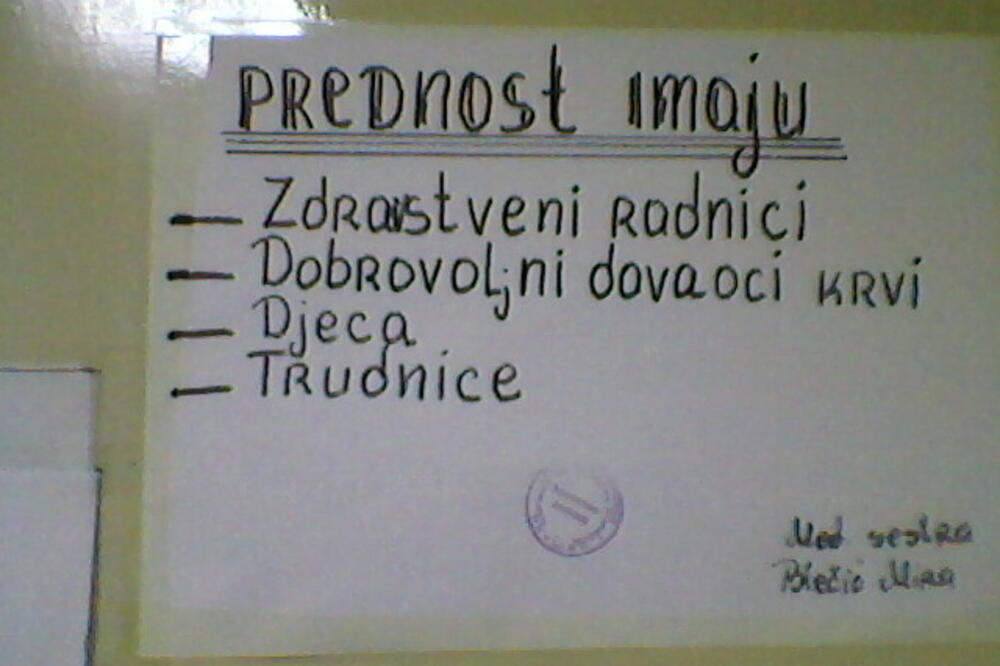 PREDNOST IMAJU
— Zdravstveni radnici
— Dobrovoljni davaoci krvi
— Djeca
— Trudnice
Med sestra
Blečić Mira